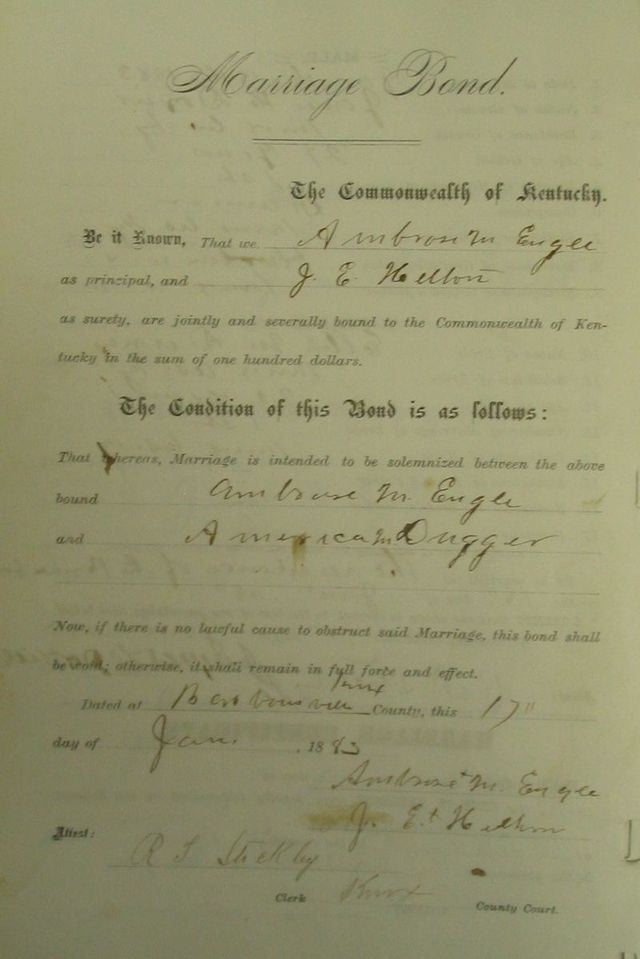 Marriage Bond.
The Commonwealth of Kentucky.
Be it Known, That we, Ambrose M Engle
as principal, and J. E. Helton
as surety, are jointly and severally bound to the Commonwealth of Ken-
tucky in the sum of one hundred dollars.
The Condition of this Bond is as follows:
That whereas, Marriage is intended to be solemnized between the above
bound Ambrose M. Engle
and America M Dugger
Now, if there is no lawful cause to obstruct said Marriage, this bond shall
be void; otherwise, it shall remain in full force and effect.
Knox
Dated at Barbourville County, this 17"
day of Jan. , 1883
Ambrose + M. Engle
J. E. + Helton
Attest:
R S
Clerk Knox County Court.